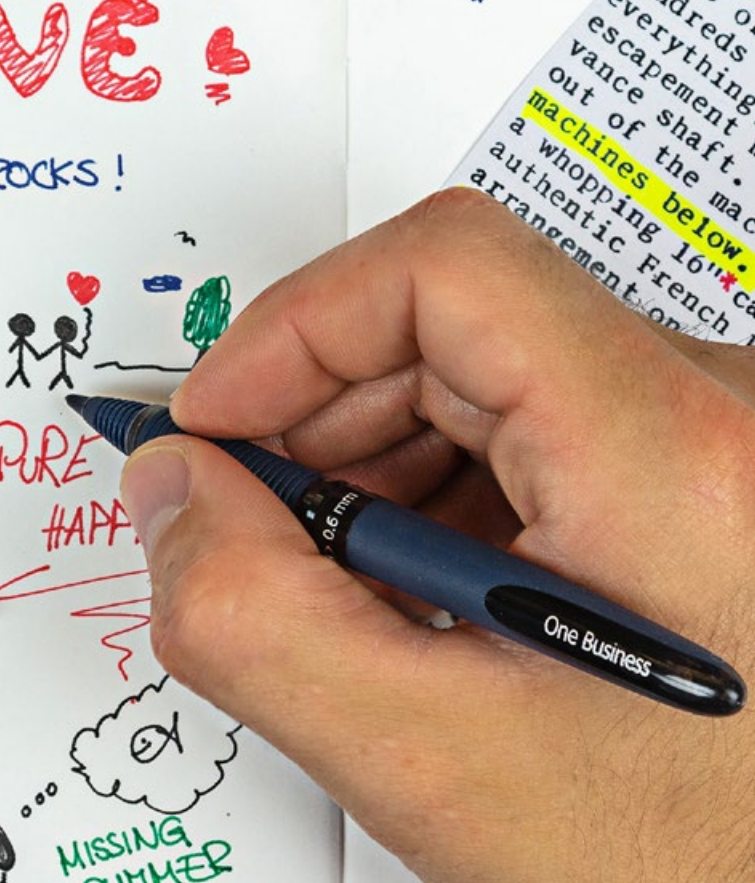 VE
ROCKS!
PURE
HAPP
MISSING
SUMMER
0.6 mm
One Business
everything
escapement
vance shaft.
out of the mac
machines below.
a whopping 16"*ca
authentic French
arrangement on